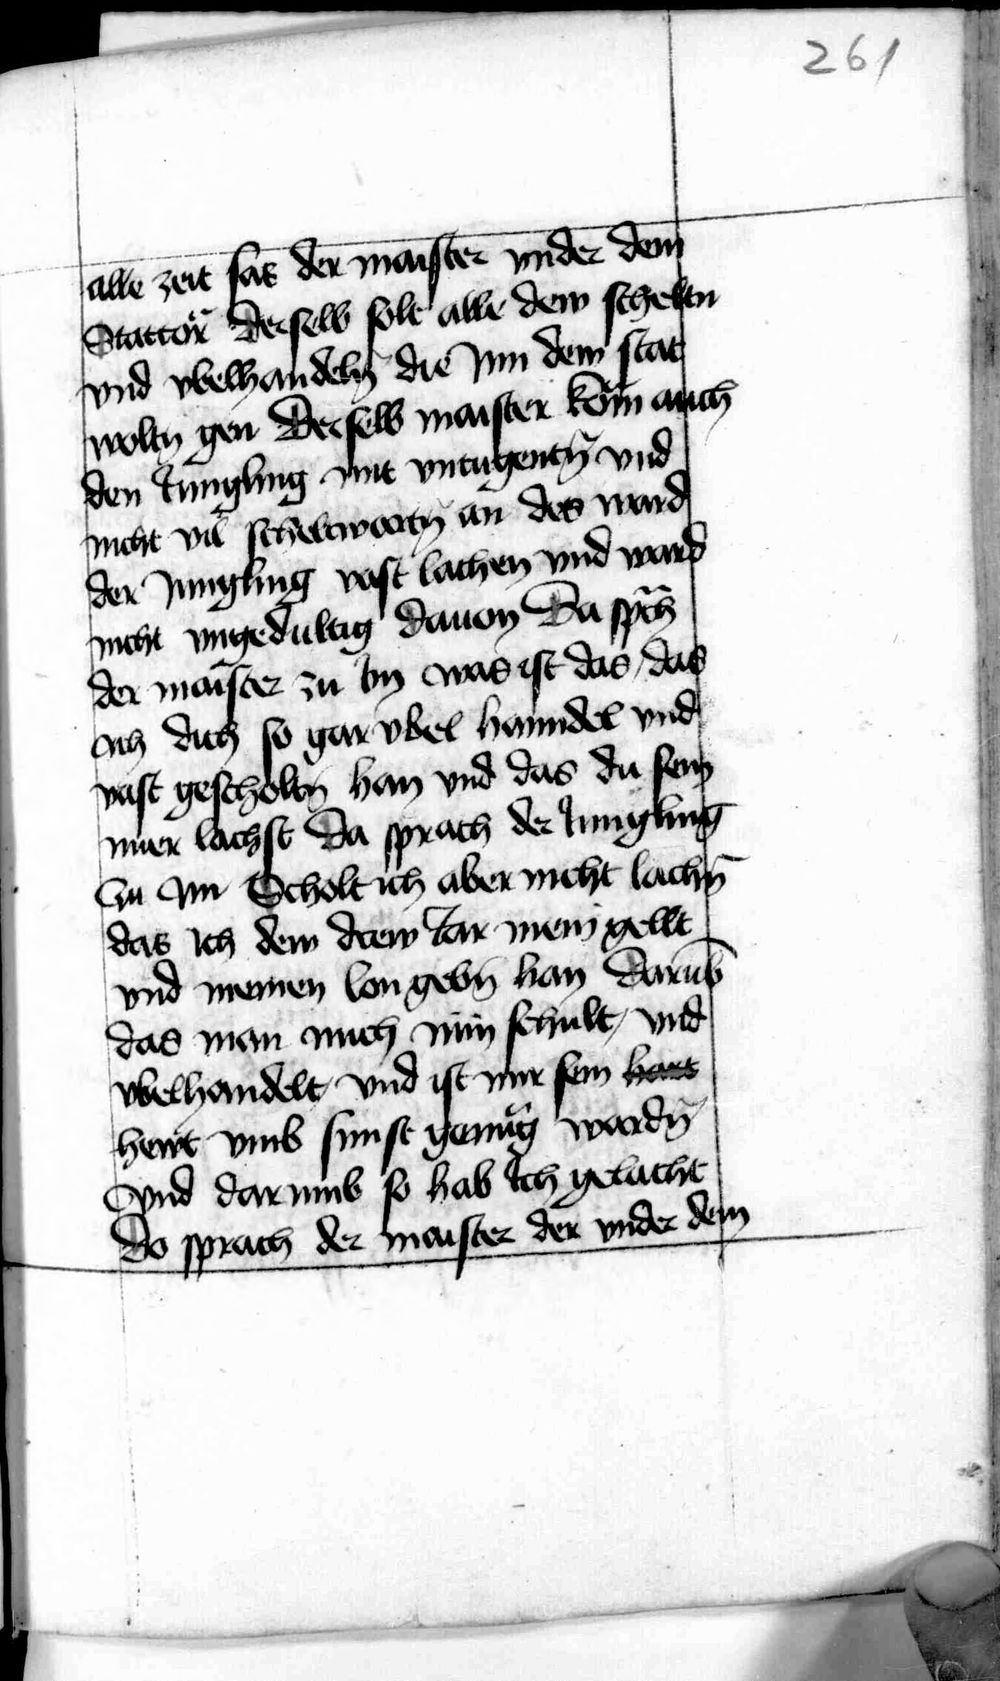 261
alle zeit sas der maister vnder dem
Stattor Derselb solt alle dew scheltn
vnd vbelhandeln̄ die Inn dem stat
woltn gen Derselb maister kom auch
den Jungling mit vntugentn̄ vnd
nicht vil scheltwortn̄ an des ward
der Jungling vast lachen vnd ward
nicht vngedultig dauon Da sprch
der maister zu Im was ist das / das
ich dich so gar vbel hanndel vnd
vast gescholtn̄ han vnd das du sein
nuer lachst Da sprach der Jungling
Zu Im Scholt ich aber nicht lachn̄
das Ich dem drew Jar mein gellt
vnd meinen lon gebn̄ han Darūb
das man mich nun schult / vnd
vbelhandelt / vnd ist mir sein
hewt vmb sunst genug wordn̄
Vnd darumb so hab Ich gelacht
Do sprach der maister der vnder dem